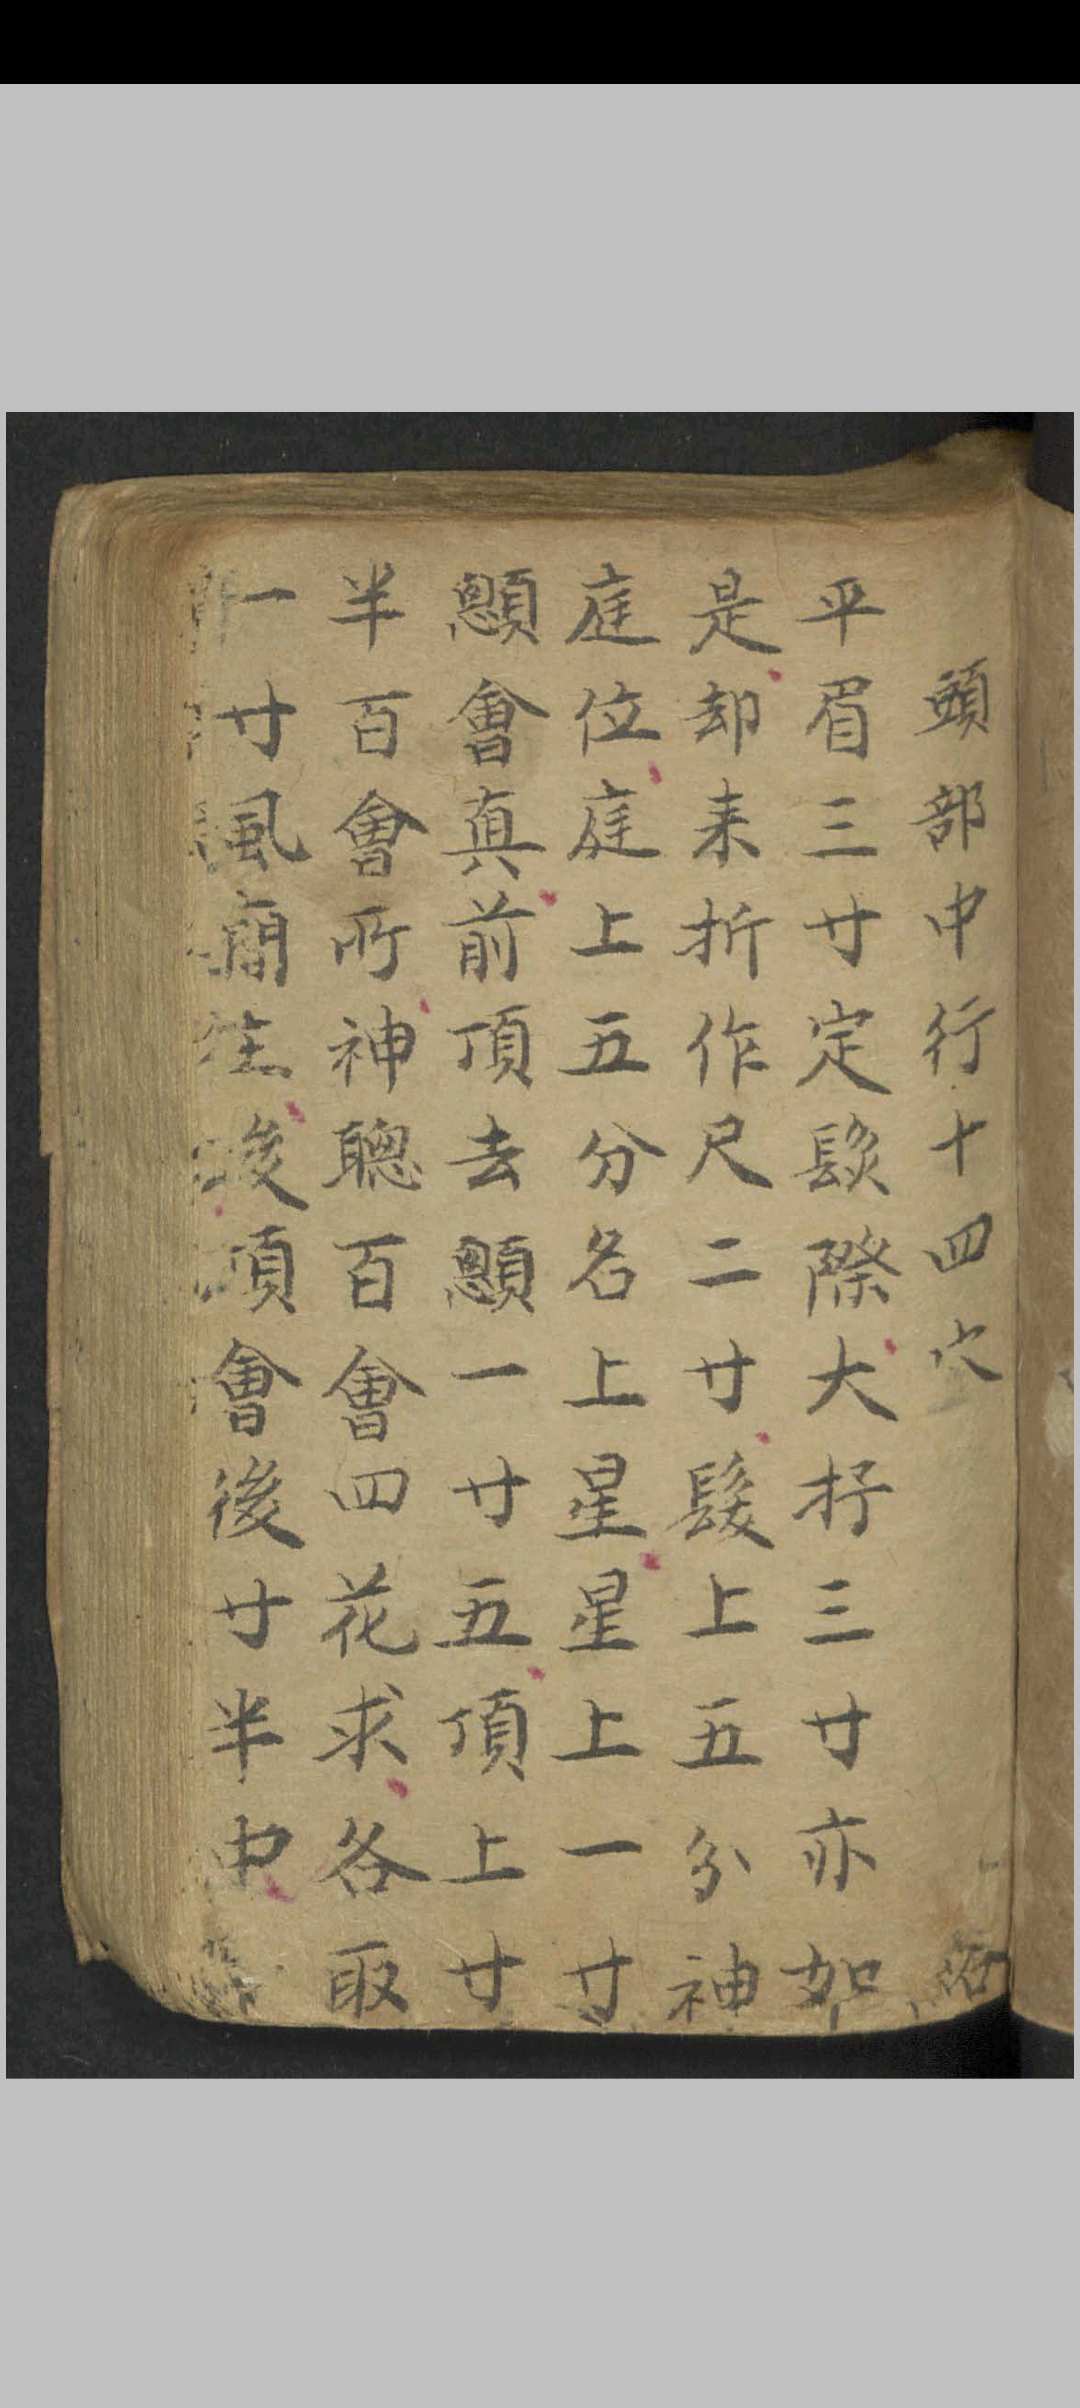 頭部中行十四穴
平眉三寸定髮際大抒三寸亦如
是却来折作尺二寸髮上五分神
庭位庭上五分名上星星上一寸
顖會真前頂去顖一寸五頂上寸
半百會所神聰百會四花求各取
一寸風癇注後頂會後寸半中